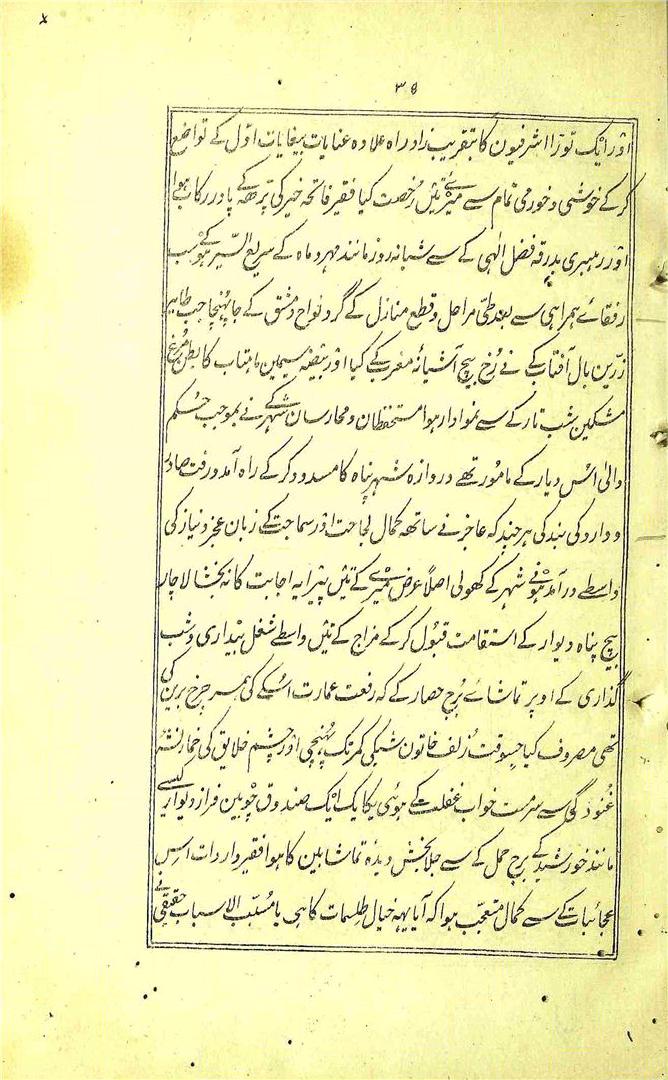 ۳۴
اور ایک توڑا اشرفیون کا بتقریب زاد راہ علاوہ عنایات بیغایات اوّل کے تواضع
کرکے خوشی و خورمی تمام سے میرے تئین رخصت کیا فقیر فاتحہ خیر کی پڑھکے پا در رکاب ہوا
اور رہبری بدرقہ فضل الٰہی کے سے شبانہ روز مانند مہر و ماہ کے سریع السّیر ہوکے سب
رفقاے ہمراہی سے بعد طیّ مراحل و قطع منازل کے گرد نواح دمشق کے جا پہنچا جب طایر
زرّین بال آفتاب کے نے رُخ بیچ آشیانۂ مغرب کے کیا اور بیضۂ سیمین ماہتاب کا بطن مرغ
مشکین شب تار کے سے نموادار ہوا مستحفظان و محارسان شہر کے نے بموجب حکم
والیٰ اُس دیار کے مامور تھے دروازہ شہر پناہ کا مسدود کر کے راہ آمد و رفت صادر
و وارد کی بند کی ہر چند کہ عاجز نے ساتھہ کمال لجاحت اور سماجت کے زبان عجز و نیاز کی
واسطے در آمد ہونے شہر کے کھولی اصلاً عرض میرے کے تئین پیرایہ اجابت کا نہ بخشا لاچار
بیچ پناہ دیوار کے استقامت قبول کر کے مزاج کے تئین واسطے شغل بیداری و شب
گذاری کے اوپر تماشاے بُرج حصار کے کہ رفعت عمارت اسکے کی ہمسر چرخ برین کی
تھی مصروف کیا جسوقت زلف خاتون شب کی کمر تک پہنچی اور چشم خلایق کی خمار نشۂ
غنودگی سے سرمست خواب غفلت کے ہوئی یکایک ایک صندوق چوبین فراز دیوار سے
مانند خورشید کے برج حمل کے سے جلا بخش دیدہ تماشابین کا ہوا فقیر واردات اس
عجائبات کے سے کمال متعجب ہوا کہ آیا یہہ خیال طلسمات کا ہی یا مُسبّب الاسباب حقیقی نے